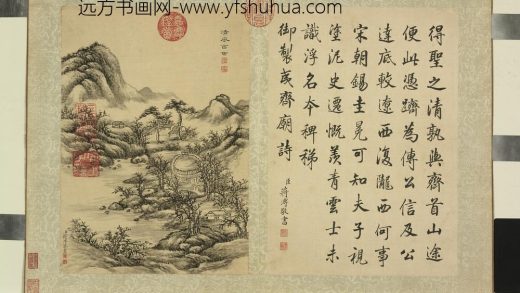 远方书画网-www.yfshuhua.com
清谷
得聖之清孰與齊首山途
便此憑躋為傳公信及公
達底較遼西復隴西何事
宋朝錫圭冕可知夫子視
塗泥史遷慨羨青雲士未
識浮名本稗稊
御製夷齊廟詩
臣蔣溥敬書